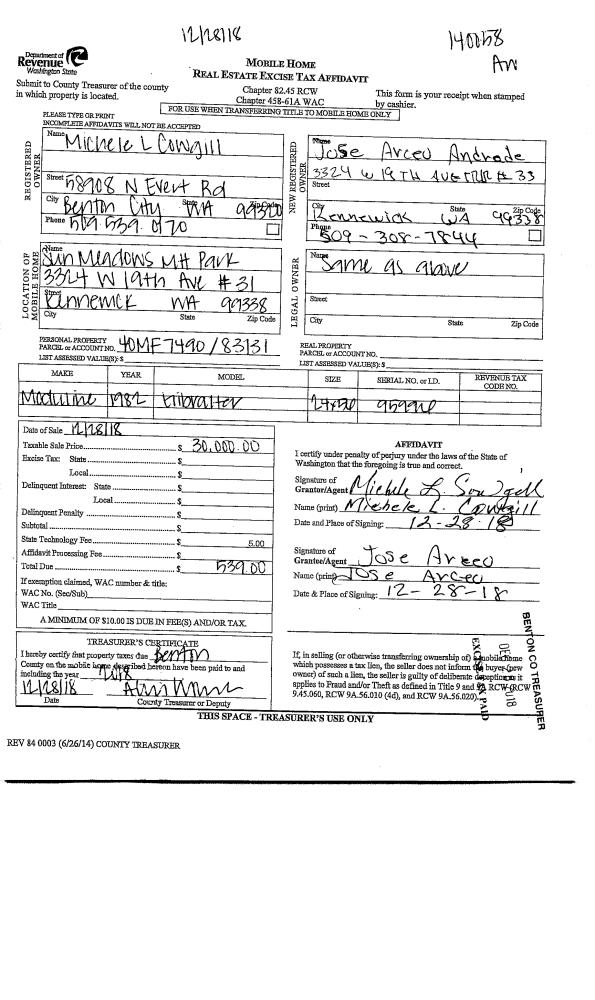 12/28/18
140058
AW
Department of
Revenue
Washington State
MOBILE HOME
REAL ESTATE EXCISE TAX AFFIDAVIT
Submit to County Treasurer of the county
in which property is located.
Chapter 82.45 RCW
Chapter 458-61A WAC
This form is your receipt when stamped
by cashier.
FOR USE WHEN TRANSFERRING TITLE TO MOBILE HOME ONLY
PLEASE TYPE OR PRINT
INCOMPLETE AFFIDAVITS WILL NOT BE ACCEPTED
REGISTERED OWNER
Name Michele L Cowgill
Street 58908 N Evert Rd
City State Zip Code
Benton City WA 99320
Phone 509.539.0170
NEW REGISTERED OWNER
Name Jose Arceo Andrade
3324 W 19TH AVE # 33
Street
City State Zip Code
Kennewick WA 99338
Phone 509-308-7844
LOCATION OF MOBILE HOME
Name Sun Meadows MH Park
3324 W 19th Ave # 31
Street
Kennewick WA 99338
City State Zip Code
LEGAL OWNER
Name Same as above
Street
City State Zip Code
PERSONAL PROPERTY
PARCEL or ACCOUNT NO. 40MF7490/83131
LIST ASSESSED VALUE(S): $
REAL PROPERTY
PARCEL or ACCOUNT NO.
LIST ASSESSED VALUE(S): $
MAKE YEAR MODEL SIZE SERIAL NO. or I.D. REVENUE TAX CODE NO.
Moduline 1982 Gibralter
Date of Sale 12/28/18
Taxable Sale Price $ 30,000.00
Excise Tax: State $
Local $
Delinquent Interest: State $
Local $
Delinquent Penalty $
Subtotal $
State Technology Fee $ 5.00
Affidavit Processing Fee $
Total Due $ 539.00
If exemption claimed, WAC number & title:
WAC No. (Sec/Sub)
WAC Title
A MINIMUM OF $10.00 IS DUE IN FEE(S) AND/OR TAX.
AFFIDAVIT
I certify under penalty of perjury under the laws of the State of
Washington that the foregoing is true and correct.
Signature of
Grantor/Agent Michele L Cowgill
Name (print) Michele L. Cowgill
Date and Place of Signing: 12-28-18
Signature of
Grantee/Agent Jose Arceo
Name (print) Jose Arceo
Date & Place of Signing: 12-28-18
TREASURER'S CERTIFICATE
I hereby certify that property taxes due Benton
County on the mobile home described hereon have been paid to and
including the year 2018
12/28/18
Date County Treasurer or Deputy
If, in selling (or otherwise transferring ownership of) a mobile home
which possesses a tax lien, the seller does not inform the buyer (new
owner) of such a lien, the seller is guilty of deliberate deception as it
applies to Fraud and/or Theft as defined in Title 9 and 9A RCW (RCW
9.45.060, RCW 9A.56.010 (4d), and RCW 9A.56.020).
EXCISE TAX PAID
2018
BENTON CO TREASURER
THIS SPACE - TREASURER'S USE ONLY
REV 84 0003 (6/26/14) COUNTY TREASURER